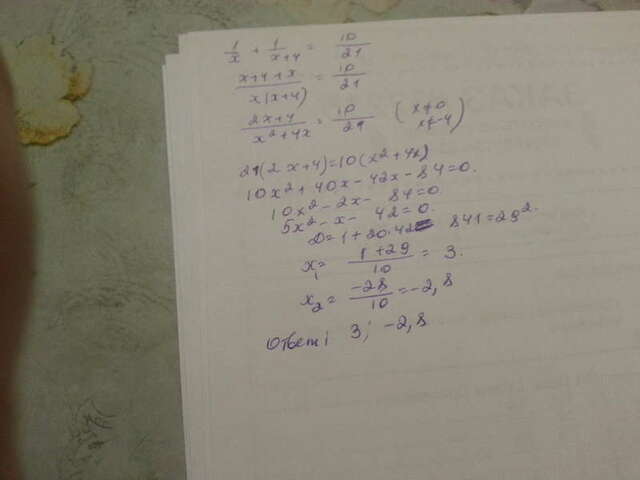 1/x + 1/(x+4) = 10/21
(x+4+x)/(x(x+4)) = 10/21
(2x+4)/(x²+4x) = 10/21 (x≠0 x≠-4)
21(2x+4)=10(x²+4x)
10x²+40x-42x-84=0.
10x²-2x-84=0
5x²-x-42=0.
D=1+20·42 841=29².
x₁= (1+29)/10 = 3.
x₂= -28/10 = -2,8
Ответ: 3; -2,8